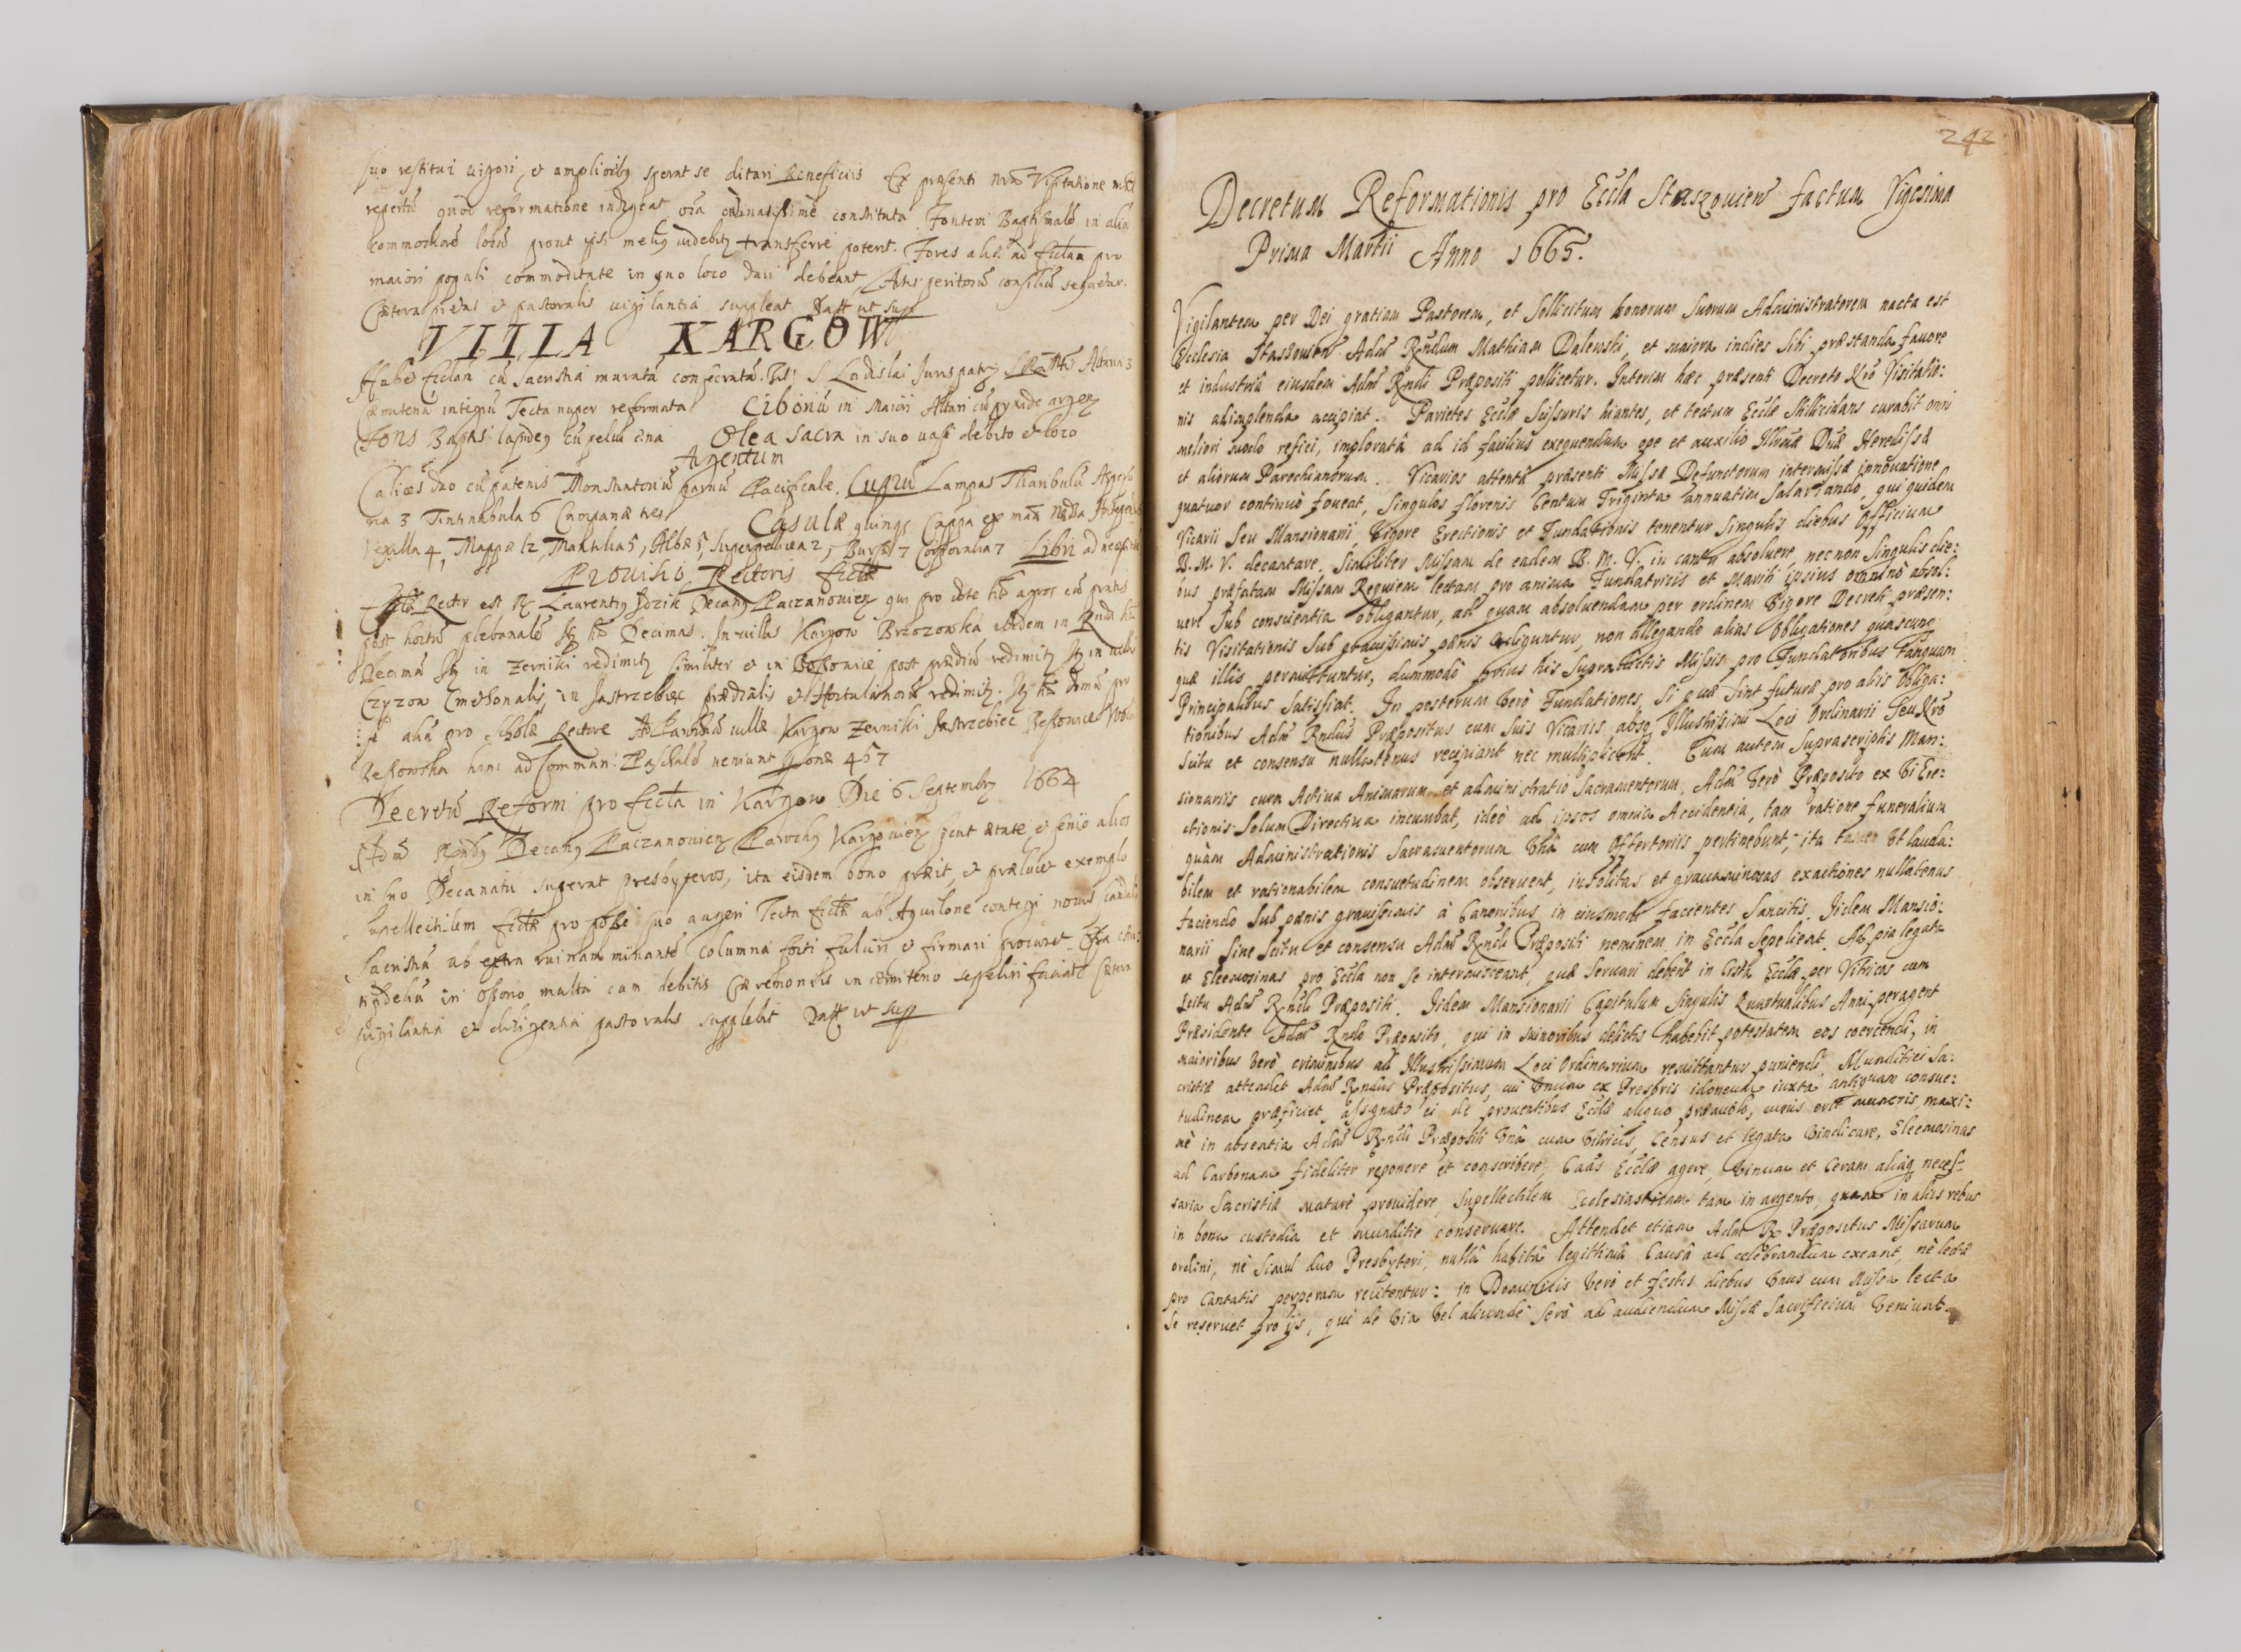 suo restitui uigori, et amplioribq sperat se ditari Beneficiis Ex præsenti nrã Visitatione
repertũ quod reformatione indigeat oĩa constituta. Fontem Baptismalẽ in aliũ
commodiorẽ locũ prout ipsi meliq uidebitz transferri poterit. Fores aliæ ad Eccłam pro
maiori populi commoditate in quo loco dari debeant, Artis peritorũ consiliũ sequetur.
Cætera et pastoralis uigilantia suppleat Datt ut sup
VILLA KARGOW
Habet Eccłam cũ Sacristia muratã consecratã Tit: S Ladislai Jurispatr: Altaria 3
integrũ Tecta nuper reformata Ciboriũ in Maiori Altari cũ pyxide argen
Fons Baptis: lapideq cũ pelui Olea Sacra in suo uase debito et loco
Argentum
Calices duo cũ patenis Monstratoriũ paruũ Pacificale. Cuprũ Lampas Thuribulũ Aspers
ria 3 Tintinabula 6 Campanæ tres Casulæ quinqz Cappa ex
Vexilla 4, Mappæ 12, Mantilia 5, Albæ 5, Superpellicea 2, Bursæ 7 Corporalia 7 Libri ad
Prouisio Rectoris Eccłæ
Eccłæ Rector est R Laurentiq Jdzik Decanq Paczanouien qui pro dote ht agros cũ pratis
post hortũ plebanalẽ It ht Decimas. In uillis Kargow Brzozowka ibidem in
Decimã It in Zerniki redimitz similiter et in Bosowice post prædiũ redimitz It in uilla
Czyzow Cmethonalis, in Jastrzebiec prædialis et Hortulanorũ redimitz. It ht domũ pro
se aliã pro Scholæ Rectore Ad Parochiã uillæ Kargow Zerniki Jastrzebiec
hinc ad Commun: Paschalẽ ueniunt psonæ 457
Decretũ Reform pro Eccła in Kargow Die 6 Septembrz 1664
Adm Rndq Decanq Paczanouien Parochq Kargouien sicut ætate, et senio alios
in suo Decanatu superat presbyteros, ita eisdem bono præit, et prælucet exemplo
supellectilem Eccłæ pro posse suo augeri Tecta Eccłæ ab Aquilone contegi nouis
Sacristiã ab extra ruinam minantẽ Columna forti fulciri et firmari procuret
in multa cum debitis Cæremoniis in cæmiterio sepeliri faciat Cætera
uigilantia et diligentia pastoralis supplebit Datt ut sup
242
Decretum Reformationis pro Eccla Staszouien factum Vigesima
Prima Martii Anno 1665.
Vigilantem per Dei gratiam Pastorem, et sollicitum bonorum suorum Administratorem nacta est
Ecclesia Staszouien Adm Rndum Mathiam Dalewski, et maiora indies sibi præstanda fauore
et industriâ eiusdem Adm Rndi Præpositi pollicetur. Interim hæc præsenti Decreto Nrõ Visitatio:
nis adimplenda accipiat. Parietes Ecclæ scissuris hiantes, et tectum Ecclæ stillicidans curabit omni
meliori modo refici, imploratâ ad id facilius exequendum ope et auxilio Illmæ Dnæ Heredissæ
et aliorum Parochianorum. Vicarios attentâ præsenti Missæ Defunctorum intermissæ innouatione
quatuor continuò foueat, singulos florenis Centum Triginta annuatim Salariando, qui quidem
Vicarii Seu Mansionarii, Vigore Erectionis et Fundationis tenentur singulis diebus Officium
B. M. V. decantare. Similiter Missam de eadem B. M. V. in cantu absoluere, nec non singulis die:
bus præfatam Missam Requiem lectam pro anima Fundatricis et Mariti ipsius omninò absol:
uere sub conscientia obligantur, ad quam absoluendam per ordinem Vigore Decreti præsen:
tis Visitationis sub grauissimis pænis adiguntur, non allegando alias obligationes quascunq
quæ illis permittuntur, dummodò prius his supradictis Missis pro Fundatoribus tanquam
Principalibus satisfiat. In posterum verò Fundationes, si quæ sint futuræ pro aliis obliga:
tionibus Adm Rndus Præpositus cum suis Vicariis absq Illustrissimi Loci Ordinarii Seu Nrõ
scitu et consensu nullatenus recipiant nec multiplicent. Cum autem suprascriptis Man:
sionariis cura Actiua Animarum et administratio Sacramentorum, Adm verò Præposito ex vi Ere:
ctionis solum Directiua incumbat, ideò ad ipsos omnia Accidentia, tam ratione funeralium
quàm Administrationis Sacramentorum vnà cum Offertoriis pertinebunt, ita tamen vt lauda:
bilem et rationabilem consuetudinem obseruent, insolitas et grauaminosas exactiones nullatenus
faciendo sub pænis grauissimis à Canonibus in eiusmodi facientes sancitis. Jidem Mansio:
narii sine scitu et consensu Adm Rndi Præpositi neminem in Eccla sepeliant. Ad pia legata
et Eleemosinas pro Eccla non se intermisceant, quæ seruari debent in Cista Ecclæ per Vitricos cum
scitu Adm Rndi Præpositi. Jidem Mansionarii Capitulum singulis Quartualibus Anni peragent
Præsidente Adm Rndo Præposito, qui in minoribus delictis habebit potestatem eos coercendi, in
maioribus verò criminibus ad Illustrissimum Loci Ordinarium remittantur puniendi. Munditiei Sa:
cristiæ attendet Adm Rndus Præpositus, cui vnum ex Presbris idoneum iuxta antiquam consue:
tudinem præficiet, assignato ei de prouentibus Ecclæ aliquo præmiolo, cuius erit muneris maxi:
mè in absentia Adm Rndi Præpositi vnà cum Vitricis, Census et legata vindicare, Eleemosinas
ad Carbonam fideliter reponere et conscribere, Caũs Ecclæ agere, vinum et Ceram aliaq neces:
saria Sacristiæ maturè prouidere, supellectilem Ecclesiasticam tam in argento, quam in aliis rebus
in bona custodia et munditie conseruare. Attendet etiam Adm R Præpositus Missarum
ordini, nè simul duo Presbyteri, nullâ habitâ legittimâ Causâ ad celebrandum exeant, nè lectæ
pro Cantatis perperam recitentur: in Dominicis verò et festis diebus vnus cum Missa lecta
se reseruet pro ijs, qui de via vel aliunde serò ad audiendum Missæ Sacrificium veniunt.